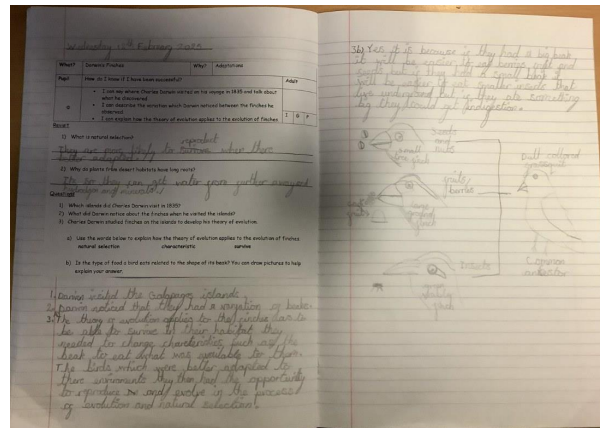 Wednesday 15th February 2023
What? Darwin's Finches Why? Adaptations
Pupil How do I know if I have been successful? Adult
• I can say where Charles Darwin visited on his voyage in 1835 and talk about
what he discovered
• I can describe the variation which Darwin noticed between the finches he
observed
• I can explain how the theory of evolution applies to the evolution of finches
I G P
Recall
1) What is natural selection?
reproduct
They are more likely to survive when there
better adapted.
2) Why do plants from desert habitats have long roots?
Its so they can get water from further
and minerals
Questions
1) Which islands did Charles Darwin visit in 1835?
2) What did Darwin notice about the finches when he visited the islands?
3) Charles Darwin studied finches on the islands to develop his theory of evolution.
a) Use the words below to explain how the theory of evolution applies to the evolution of finches
natural selection characteristic survive
b) Is the type of food a bird eats related to the shape of its beak? You can draw pictures to help
explain your answer.
1. Darwin visited the Galapagos islands.
2. Darwin noticed that they had a variation of beaks.
3. The theory of evolution applies to the finches has to
be able to survive in their habitat they
needed to change such as the
beak to eat what was available to them.
The birds which were better adapted to
there they then had the opportunity
to reproduce and evolve in the process
of evolution and natural selection.
3b) Yes it is because if they had a big beak
it will be easier to eat berries with and
fruit but if they had a small beak it
will be easier to eat smaller insects that
live underground but if they ate something
big they could get indigestion.
Seeds
and
nuts
small
finch
fruits/
berries
large
ground
finch
Insects
finch
Dull coloured
Common
ancestor